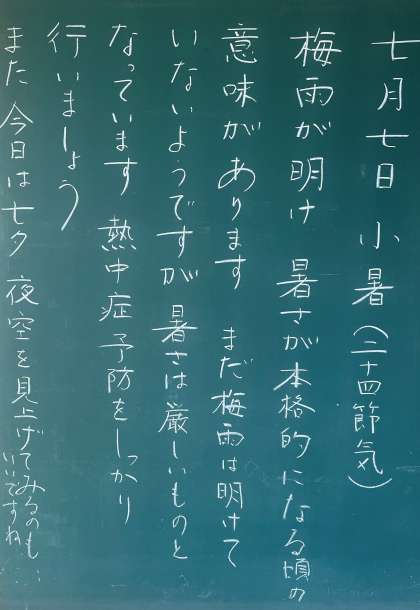 七月七日 小暑（二十四節気）
梅雨が明け 暑さが本格的になる頃の
意味があります まだ梅雨は明けて
いないようですが 暑さは厳しいものと
なっています 熱中症予防をしっかり
行いましょう
また 今日は七夕 夜空を見上げてみるのも
いいですね…